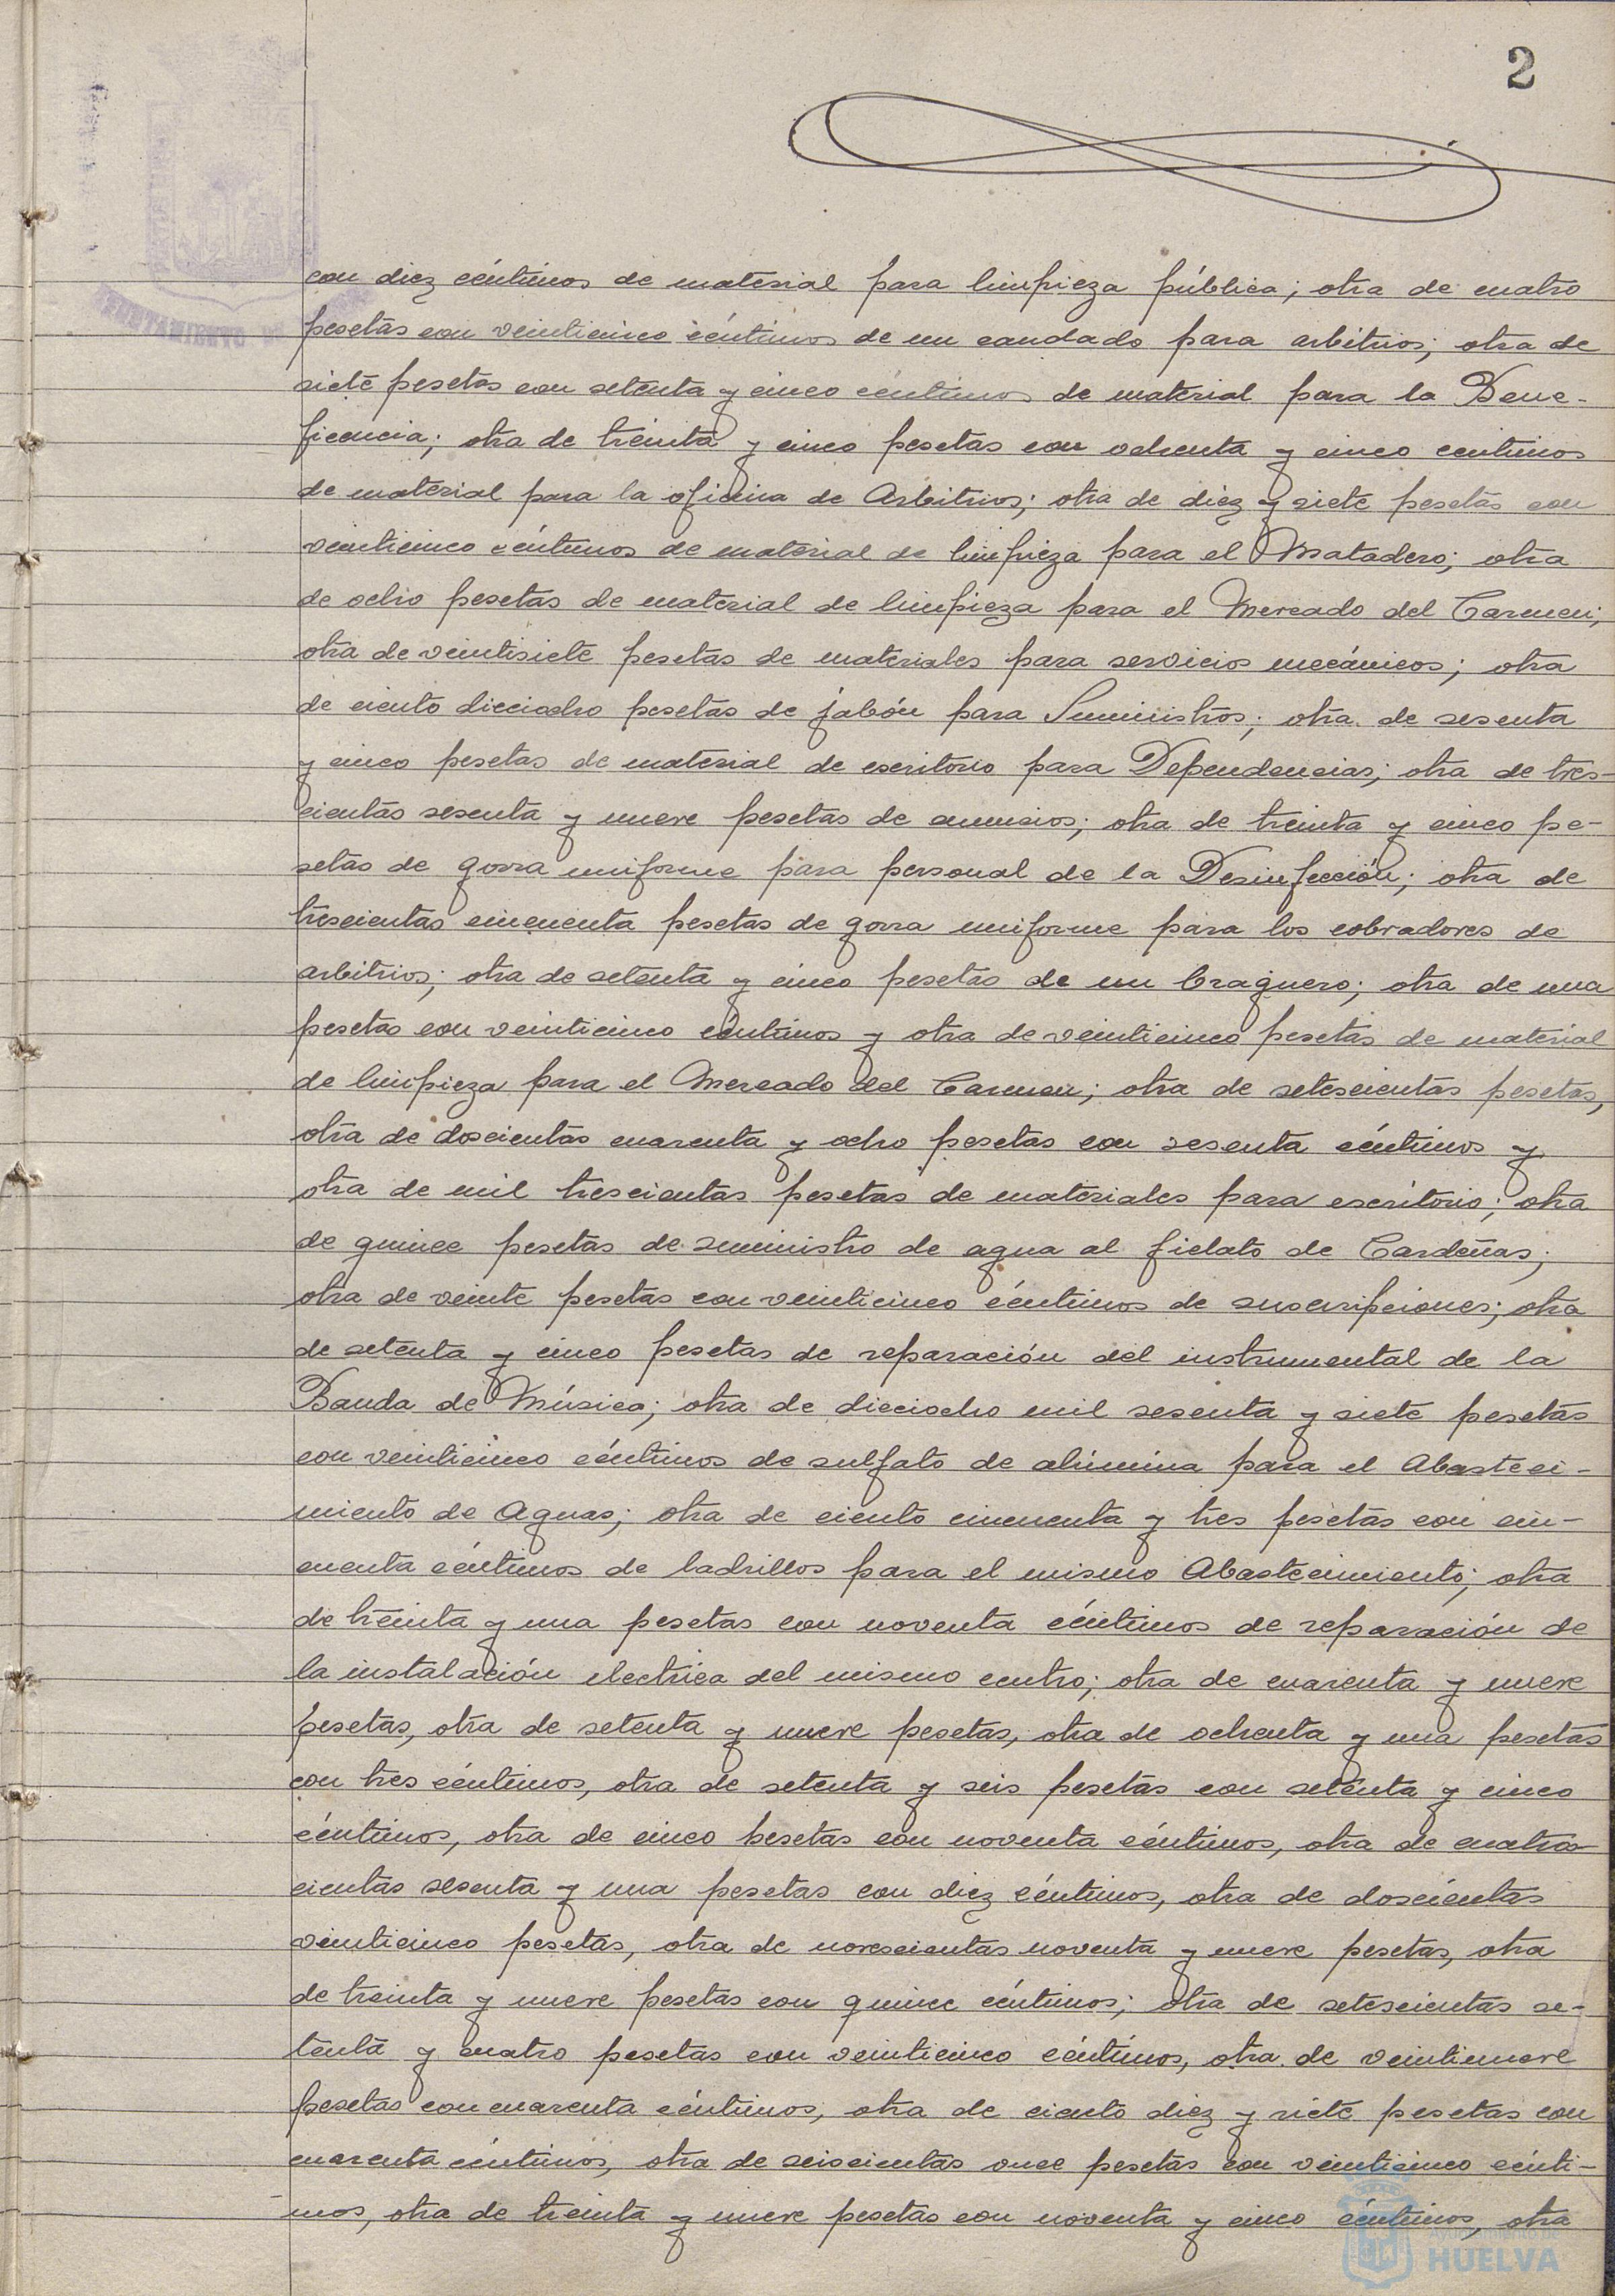 2
con diez céntimos de material para limpieza pública; otra de cuatro
pesetas con veinticinco céntimos de un candado para arbitrios; otra de
siete pesetas con setenta y cinco céntimos de material para la Bene-
ficencia; otra de treinta y cinco pesetas con ochenta y cinco centimos
de material para la oficina de Arbitrios; otra de diez y siete pesetas con
veinticinco céntimos de material de limpieza para el Matadero; otra
de ocho pesetas de material de limpieza para el Mercado del Carmen;
otra de veintisiete pesetas de materiales para servicios mecánicos; otra
de ciento dieciocho pesetas de jabón para Suministros; otra de sesenta
y cinco pesetas de material de escritorio para Dependencias; otra de tres-
cientas sesenta y nueve pesetas de anuncios; otra de treinta y cinco pe-
setas de gorra uniforme para personal de la Desinfección; otra de
trescientas cincuenta pesetas de gorra uniforme para los cobradores de
arbitrios; otra de setenta y cinco pesetas de un braguero; otra de una
pesetas con veinticinco céntimos y otra de veinticinco pesetas de material
de limpieza para el Mercado del Carmen; otra de setescientas pesetas,
otra de doscientas cuarenta y ocho pesetas con sesenta céntimos y
otra de mil trescientas pesetas de materiales para escritorio; otra
de quince pesetas de suministro de agua al fielato de Cardeñas;
otra de veinte pesetas con veinticinco céntimos de suscripciones; otra
de setenta y cinco pesetas de reparación del instrumental de la
Banda de Música; otra de dieciocho mil sesenta y siete pesetas
con veinticinco céntimos de sulfato de alúmina para el Abasteci-
miento de Aguas; otra de ciento cincuenta y tres pesetas con cin-
cuenta céntimos de ladrillos para el mismo Abastecimiento; otra
de treinta y una pesetas con noventa céntimos de reparación de
la instalación electrica del mismo centro; otra de cuarenta y nueve
pesetas, otra de setenta y nueve pesetas, otra de ochenta y una pesetas
con tres céntimos, otra de setenta y seis pesetas con setenta y cinco
céntimos, otra de cinco pesetas con noventa céntimos, otra de cuatro-
cientas sesenta y una pesetas con diez céntimos, otra de doscientas
veinticinco pesetas, otra de novescientas noventa y nueve pesetas, otra
de treinta y nueve pesetas con quince céntimos; otra de setescientas se-
tenta y cuatro pesetas con veinticinco céntimos, otra de veintinueve
pesetas con cuarenta céntimos, otra de ciento diez y siete pesetas con
cuarenta céntimos, otra de seiscientas once pesetas con veinticinco cénti-
mos, otra de treinta y nueve pesetas con noventa y cinco céntimos, otra
HUELVA